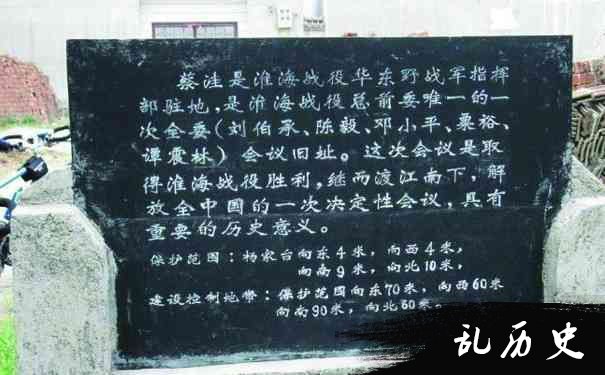 蔡洼是淮海战役华东野战军指挥
部驻地，是淮海战役总前委唯一的一
次全委（刘伯承、陈毅、邓小平、粟裕、
谭震林）会议旧址。这次会议是取
得淮海战役胜利，继而渡江南下，解
放全中国的一次决定性会议，具有
重要的历史意义。
保护范围：杨家台向东4米，向西4米，
向南9米，向北10米，
建设控制地带：保护范围向东70米，向西60米
向南90米，向北60米
乱历史